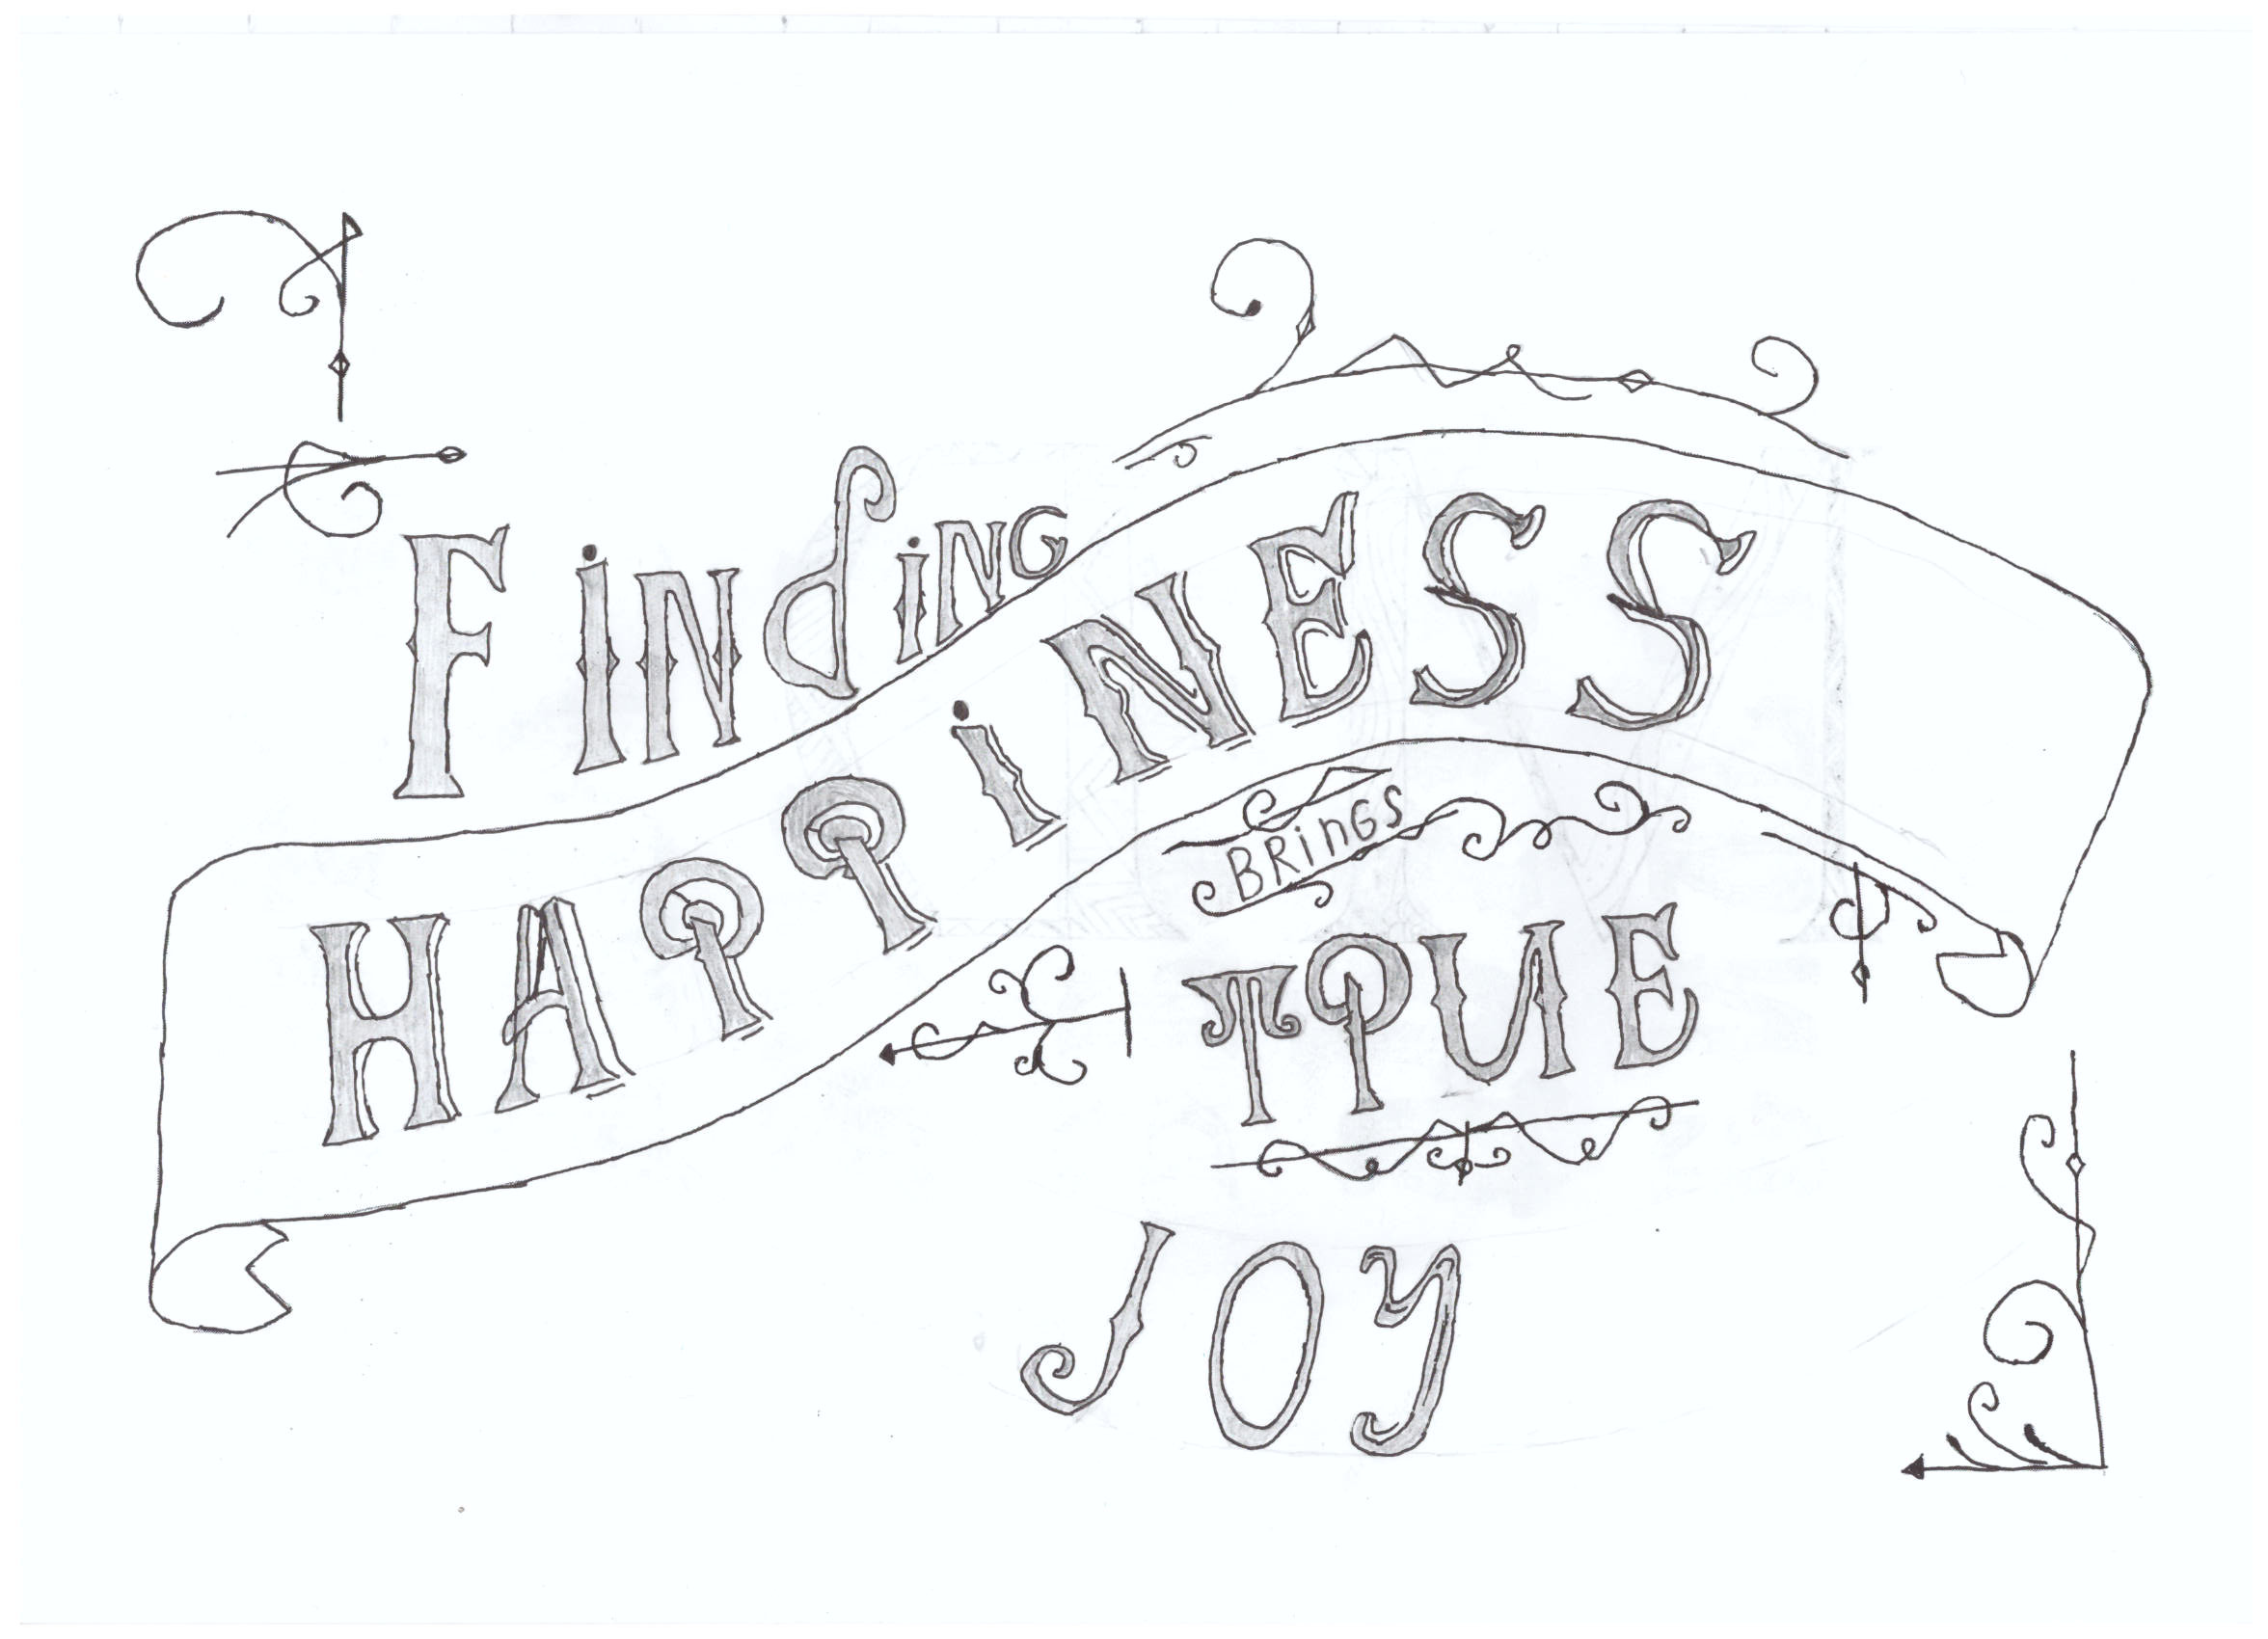 FiNdiNG
HAPPiNESS
BRinGS
TRUE
JOY